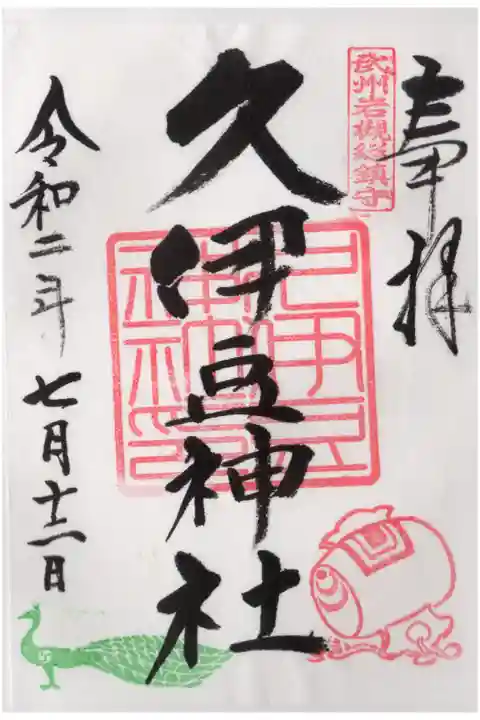 奉拝
武州岩槻総鎮守
久伊豆神社
久伊豆
神社印
令和二年七月十日